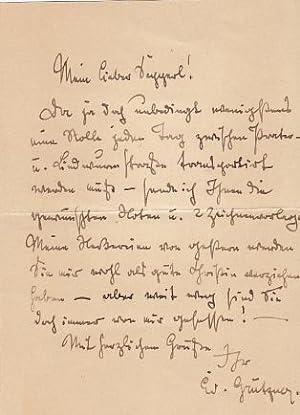 Mein lieber Supperl!
Da ja doch unbedingt wenigstens
eine Rolle jeden Tag zwischen Prater-
u. Lindwurmstraße transportirt
werden muß – sende ich Ihnen die
gewünschten Noten u. 2 Zeichenvorlagen
Meine von gestern werden
Sie mir wohl als gute Christin verziehen
haben – aber weit weg sind Sie
doch immer von mir gesessen! –
Mit herzlichem Gruße Ihr
Ed. Grützner.